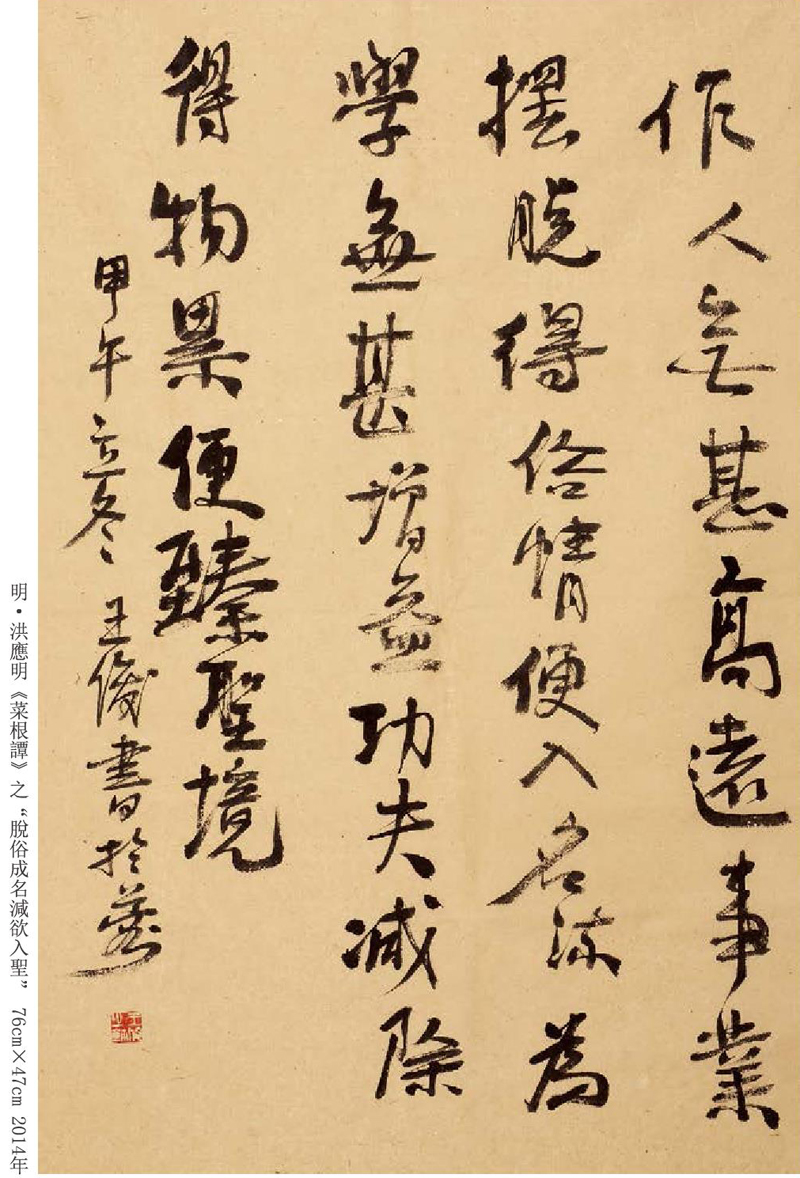 作人無甚高遠事業
擺脫得俗情便入名流為
學無甚增益功夫減除
得物累便臻聖境
甲午立冬 王 書於
明·洪應明《菜根譚》之“脫俗成名減欲入聖” 76cm×47cm 2014年